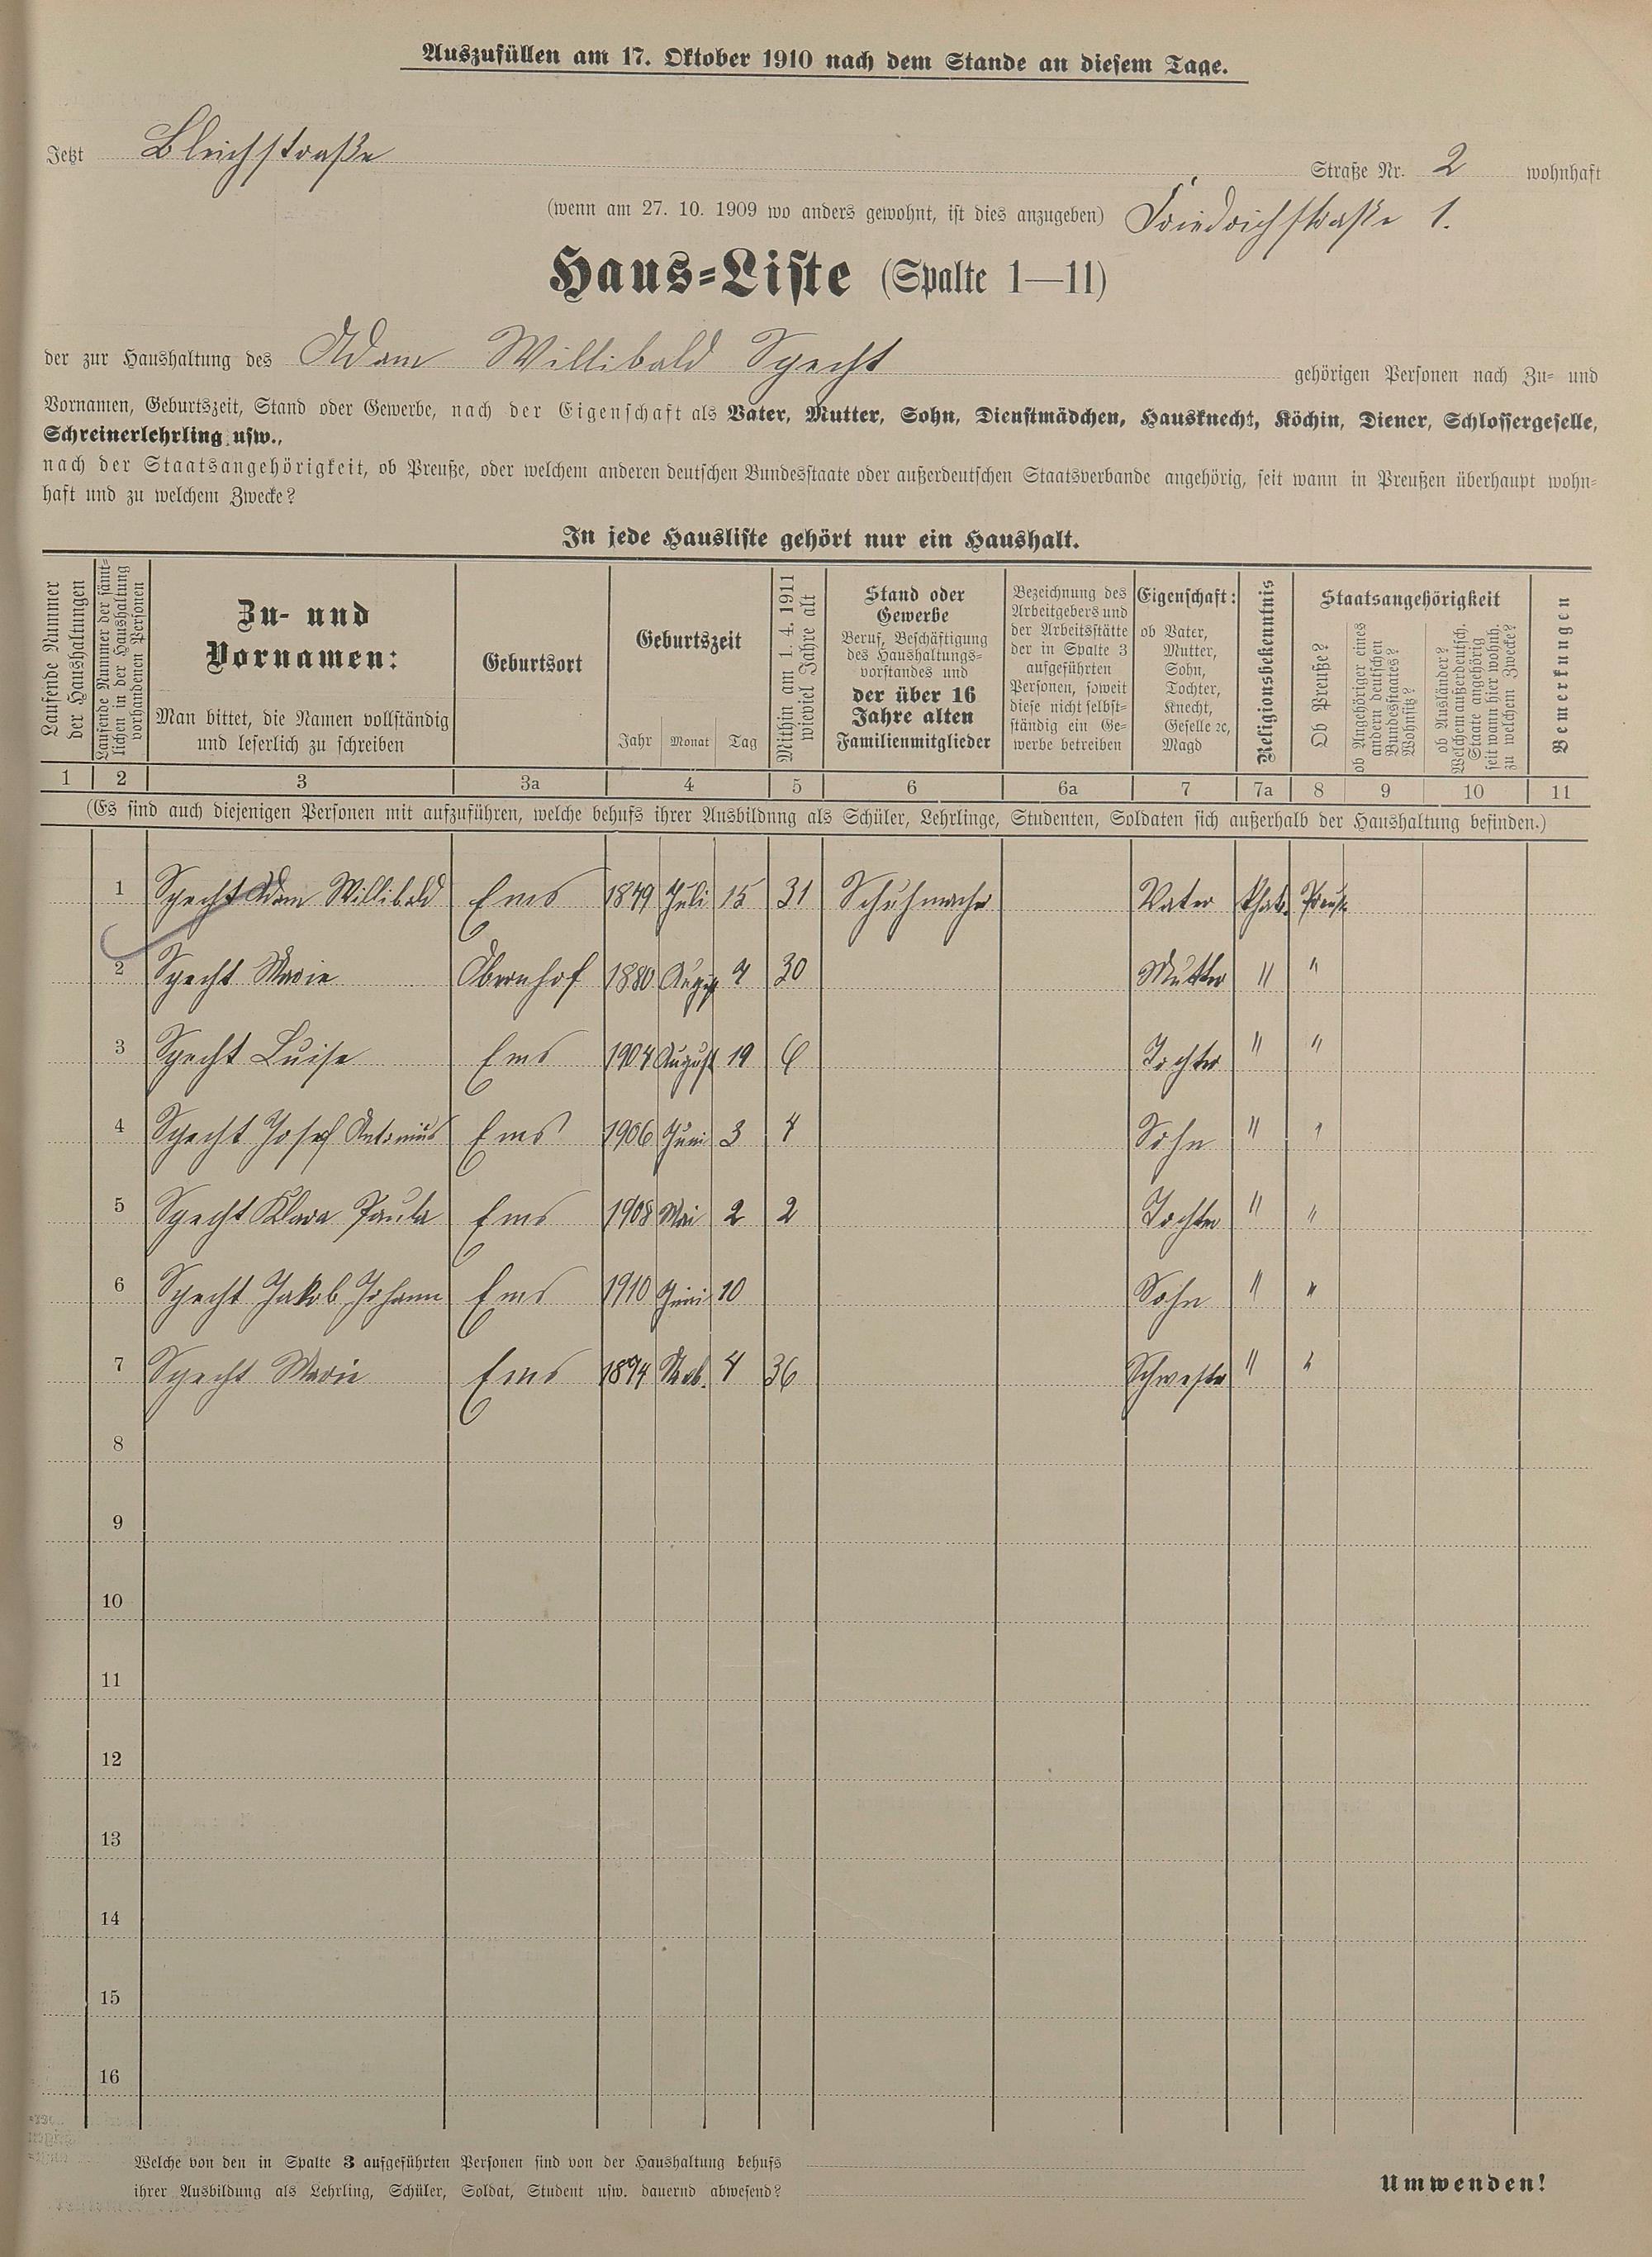 Auszufüllen am 17. Oktober 1910 nach dem Stande an diesem Tage.
Jetzt Bleichstraße Straße Nr. 2 wohnhaft
(wenn am 27. 10. 1909 wo anders gewohnt, ist dies anzugeben) Friedrichstraße 1.
Haus-Liste (Spalte 1—11)
der zur Haushaltung des Adam Willibald Specht gehörigen Personen nach Zu- und
Vornamen, Geburtszeit, Stand oder Gewerbe, nach der Eigenschaft als Vater, Mutter, Sohn, Dienstmädchen, Hausknecht, Köchin, Diener, Schlossergeselle,
Schreinerlehrling usw.,
nach der Staatsangehörigkeit, ob Preuße, oder welchem anderen deutschen Bundesstaate oder außerdeutschen Staatsverbande angehörig, seit wann in Preußen überhaupt wohn-
haft und zu welchem Zwecke?
In jede Hausliste gehört nur ein Haushalt.
Laufende Nummer
der Haushaltungen
Laufende Nummer der sämt-
lichen in der Haushaltung
vorhandenen Personen
Zu- und
Vornamen:
Man bittet, die Namen vollständig
und leserlich zu schreiben
Geburtsort
Geburtszeit
Jahr Monat Tag
Mithin am 1. 4. 1911
wieviel Jahre alt
Stand oder
Gewerbe
Beruf, Beschäftigung
des Haushaltungs-
vorstandes und
der über 16
Jahre alten
Familienmitglieder
Bezeichnung des
Arbeitgebers und
der Arbeitsstätte
der in Spalte 3
aufgeführten
Personen, soweit
diese nicht selbst-
ständig ein Ge-
werbe betreiben
Eigenschaft:
ob Vater,
Mutter,
Sohn,
Tochter,
Knecht,
Geselle ꝛc,
Magd
Religionsbekenntnis
Staatsangehörigkeit
Ob Preuße?
ob Angehöriger eines
andern deutschen
Bundesstaates?
Wohnsitz?
ob Ausländer?
Welchem außerdeutsch.
Staate angehörig
seit wann hier wohnh.
zu welchem Zwecke?
Bemerkungen
1 2 3 3a 4 5 6 6a 7 7a 8 9 10 11
(Es sind auch diejenigen Personen mit aufzuführen, welche behufs ihrer Ausbildung als Schüler, Lehrlinge, Studenten, Soldaten sich außerhalb der Haushaltung befinden.)
1 Specht Adam Willibald Ems 1879 Juli 15 31 Schuhmacher Vater Kath. Preuße
2 Specht Marie Obernhof 1880 30 Mutter " "
3 Specht Luise Ems 1904 August 19 6 Tochter " "
4 Specht Josef Antonius Ems 1906 Juni 3 4 Sohn " "
5 Specht Klara Paula Ems 1908 Mai 2 2 Tochter " "
6 Specht Jakob Johann Ems 1910 Juni 10 Sohn " "
7 Specht Marie Ems 1874 4 36 Schwester " "
8
9
10
11
12
13
14
15
16
Welche von den in Spalte 3 aufgeführten Personen sind von der Haushaltung behufs
ihrer Ausbildung als Lehrling, Schüler, Soldat, Student usw. dauernd abwesend?
Umwenden!